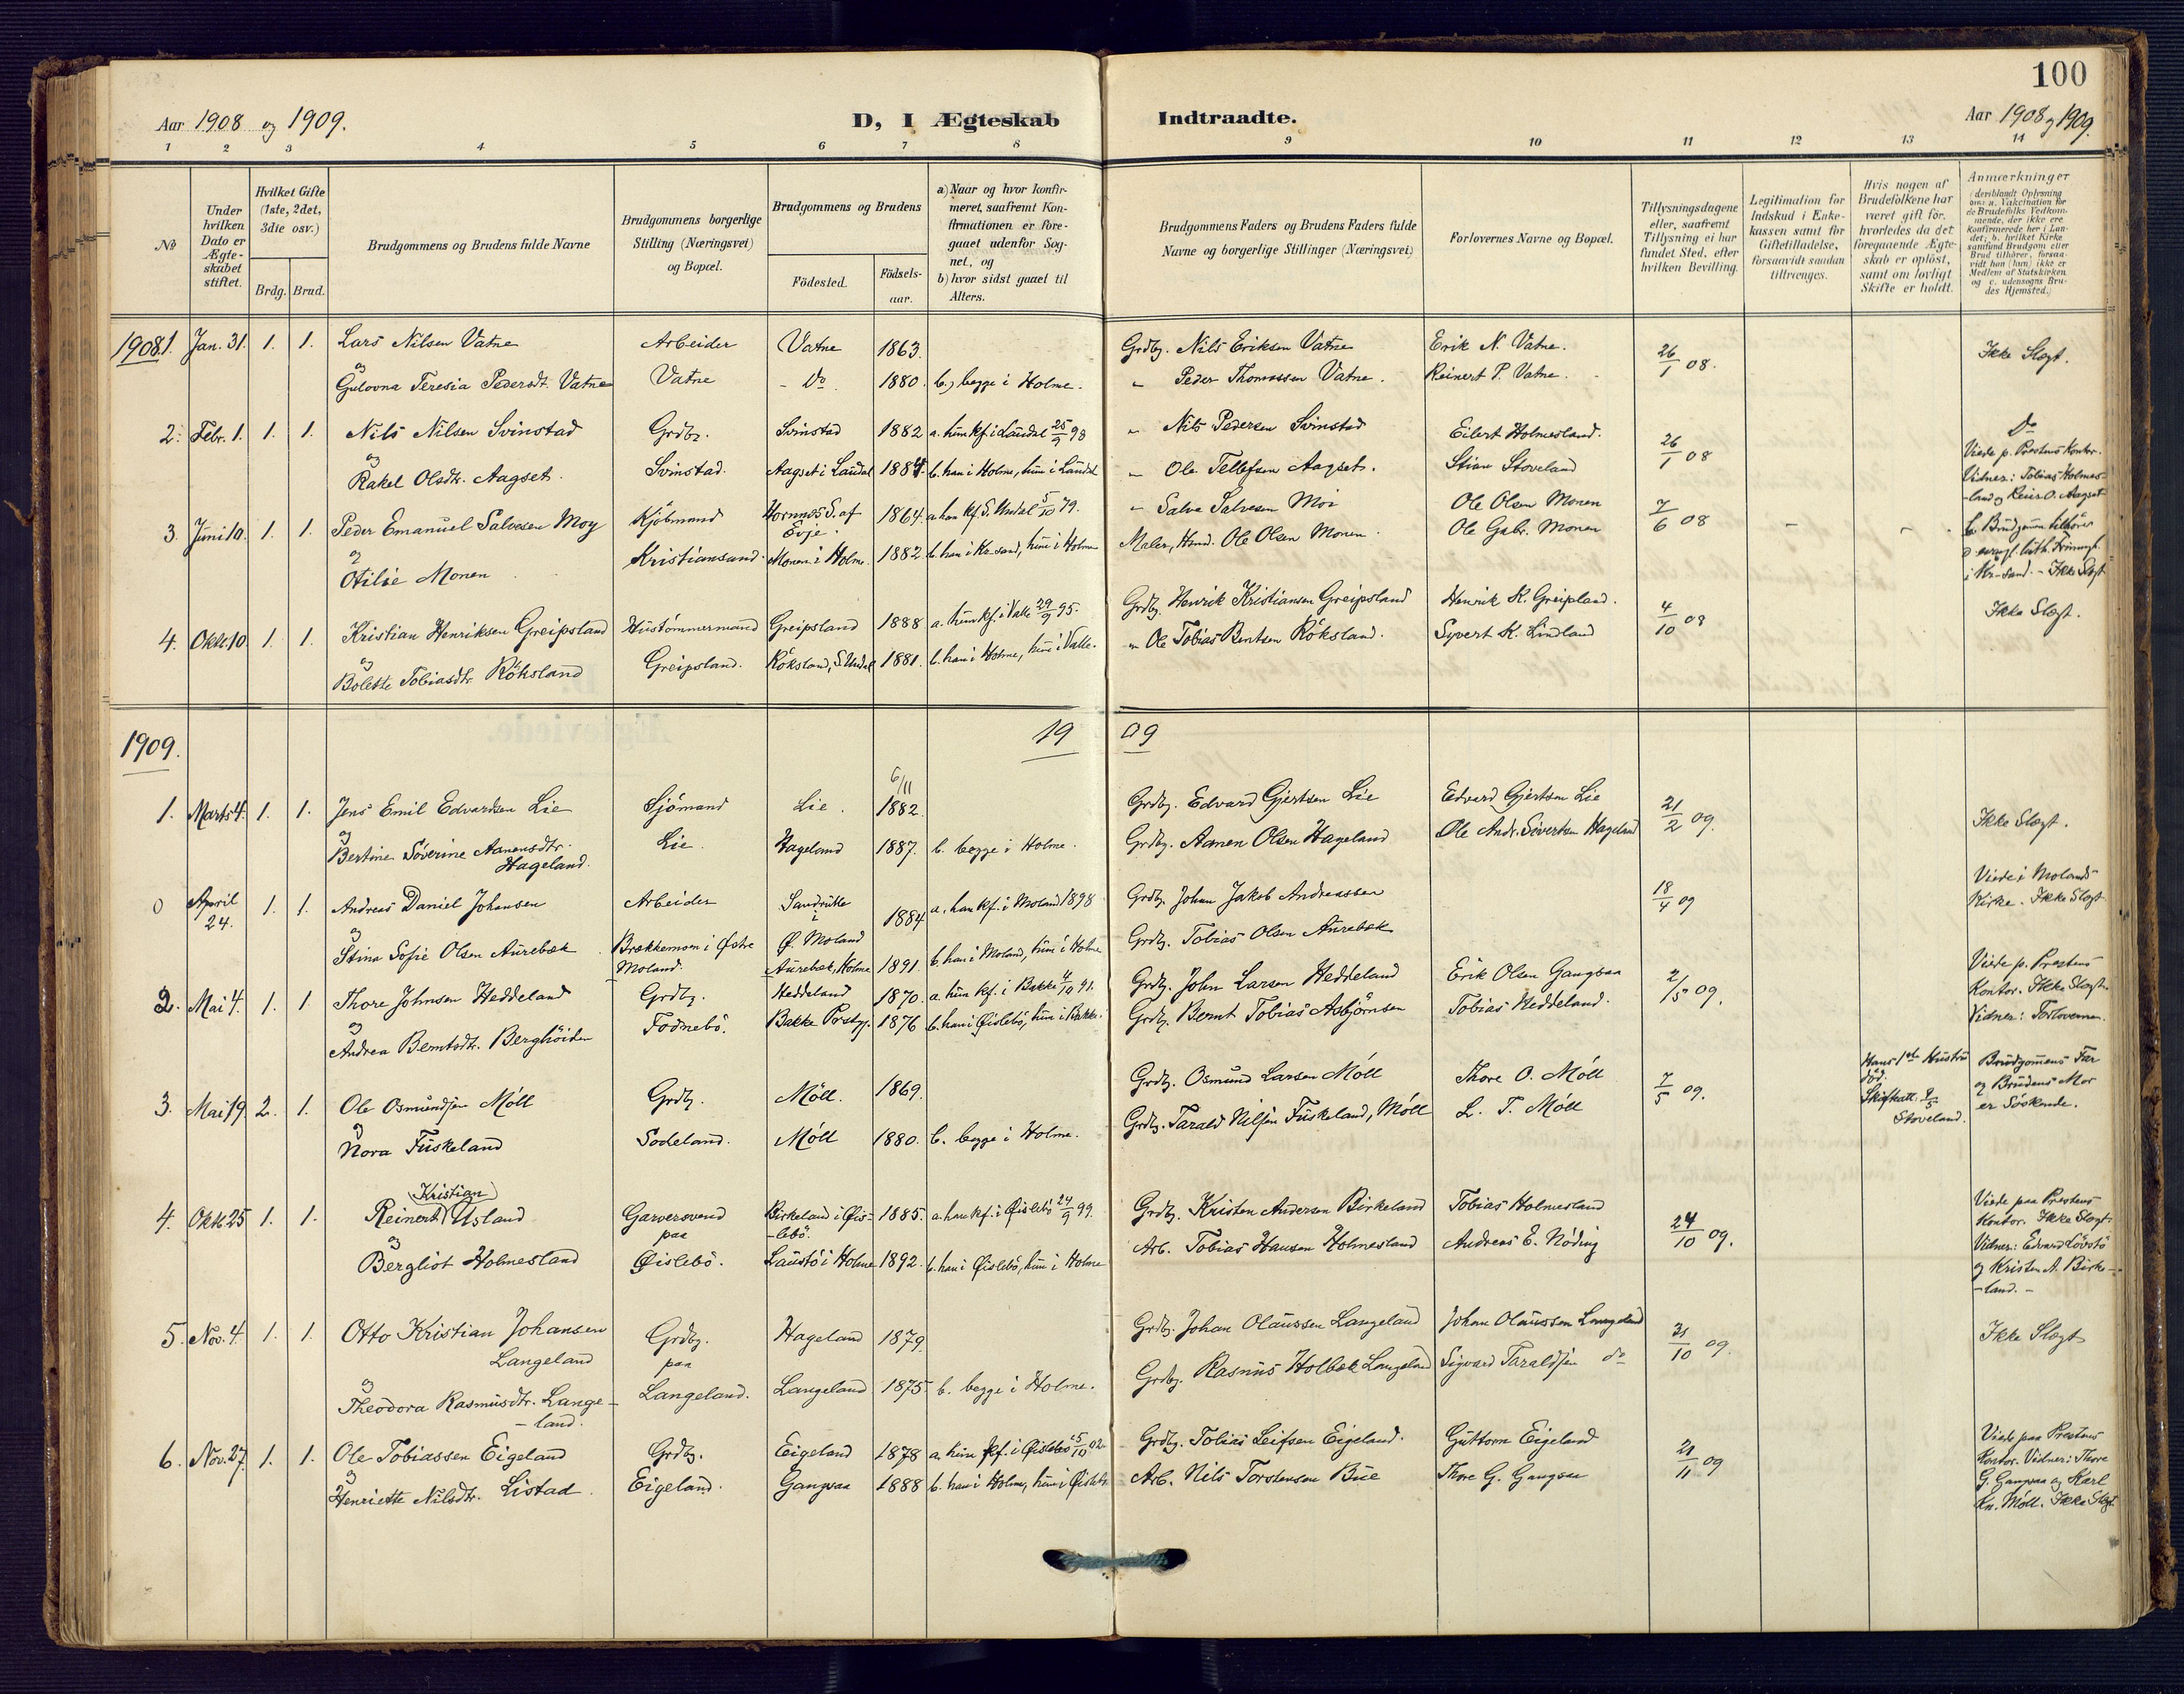 100
Aar 1908 og 1909.
D, I Ægteskab Indtraadte.
Aar 1908 og 1909.
1 2 3 4 5 6 7 8 9 10 11 12 13 14
No
Under hvilken Dato er Ægteskabet stiftet.
Hvilket Gifte (1ste, 2det, 3die osv.)
Brdg. Brud.
Brudgommens og Brudens fulde Navne
Brudgommens borgerlige Stilling (Næringsvei) og Bopæl.
Brudgommens og Brudens
Födested.
Födselsaar.
a) Naar og hvor konfirmeret, saafremt Konfirmationen er foregaaet udenfor Sognet, og
b) hvor sidst gaaet til Alters.
Brudgommens Faders og Brudens Faders fulde Navne og borgerlige Stillinger (Næringsvei)
Forlovernes Navne og Bopæl.
Tillysningsdagene eller, saafremt Tillysning ei har fundet Sted, efter hvilken Bevilling.
Legitimation for Indskud i Enkekassen samt for Giftetilladelse, forsaavidt saadan tiltrænges.
Hvis nogen af Brudefolkene har været gift för, hvorledes da det foregaaende Ægteskab er oplöst, samt om lovligt Skifte er holdt.
Anmærkninger (deriblandt Oplysning om: a. Vakcination for de Brudefolks Vedkommende, der ikke ere konfirmerede her i Landet; b. hvilket Kirkesamfund Brudgom eller Brud tilhörer, forsaavidt han (hun) ikke er Medlem af Statskirken og c. udensogns Brudes Hjemsted.)
1908 1. Jan. 31. 1. 1. Lars Nilsen Vatne Arbeider Vatne 1863. Grdbg. Nils Eriksen Vatne Erik N. Vatne. 26/1 08. Ikke Slegt.
og Gulovna Teresia Pedersdt. Vatne Vatne - Do. 1880. b., begge i Holme. " Peder Thomassen Vatne. Reinert P. Vatne.
2. Febr. 1. 1. 1. Nils Nilsen Svinstad Grdbg. Svinstad 1882 a. hun kf. i Laudal 25/9 98 " Nils Pedersen Svinstad Eilert Holmesland. 26/1 08 Do
og Rakel Olsdtr. Aagset. Svinstad. Aagset i Laudal 1884 b. han i Holme, hun i Laudal " Ole Tellefsen Aagset. Stian Stoveland
Viede p. Prestens Kontor.
Vidner: Tobias Holmes-
-land og Reier O. Aagset
3. Juni 10. 1. 1. Peder Emanuel Salvesen Moy Kjöbmand Hornnes S. af Evje. 1864. a. han kf. S. Undal 5/10 79. " Salve Salvesen Moi Ole Olsen Monen 7/6 08 - -
og Otilie Monen Kristiansand. Monen i Holme. 1882. b. han i Kr-sand, hun i Holme Maler, Hmd. Ole Olsen Monen. Ole Gabr. Monen
b. Brudgommen tilhörer
d. evangl. luth. Frimengh.
i Kr-sand. - Ikke Slegt
4. Okt. 10. 1. 1. Kristian Henriksen Greipsland Hustömmermand Greipsland 1888 a. hun kf. i Valle 29/9 95. Grdbg. Henrik Kristiansen Greipsland Henrik K. Greipland. 4/10 08 Ikke Slegt.
og Bolette Tobiasdtr. Röksland Greipsland. Röksland, S. Undal 1881. b. han i Holme, hun i Valle. " Ole Tobias Bentsen Röksland. Syvert K. Lindland
1909. 19 09
1. Marts 4. 1. 1. Jens Emil Edvardsen Lie Sjömand Lie. 6/11 1882. Grdbg. Edvard Gjertsen Lie Edvard Gjertsen Lie 21/2 09. Ikke Slegt.
og Bertine Söverine Aanensdtr. Hageland. Lie. Hageland 1887. b. begge i Holme. Grdbg. Aanen Olsen Hageland Ole Andr. Sivertsen Hageland
0 April 24. 1. 1. Andreas Daniel Johansen Arbeider Sandrütte i Ø. Moland 1884 a. han kf. i Moland 1898 Grdbg. Johan Jakob Andreassen 18/4 09
Viede i Molands-
Kirke. Ikke Slegt
og Stina Sofie Olsen Aurebæk Brækkemom i Østre Moland. Aurebæk, Holme 1891. b. han i Moland, hun i Holme Grdbg. Tobias Olsen Aurebæk
2. Mai 4. 1. 1. Thore Johnsen Heddeland Grdbg. Heddeland 1870. a. hun kf. i Bakke 4/10 91. Grdbg. John Larsen Heddeland Erik Olsen Gangsaa 2/5 09.
og Andrea Berntsdtr. Berghöiden Fodnebö. Bakke Prstgj. 1876 b. han i Øislebö, hun i Bakke. Grdbg. Bernt Tobias Asbjörnsen Tobias Heddeland.
Viede p. Prestens
Kontor. Ikke Slegt.
Vidner: Forloverne.
3. Mai 19. 2. 1. Ole Osmundsen Möll Grdbg. Möll. 1869. Grdbg. Osmund Larsen Möll Thore O. Möll 7/5 09.
og Nora Fuskeland Sodeland. Möll 1880. b. begge i Holme. Grdbg. Tarald Nilsen Fuskeland, Möll L. T. Möll
Hans 1ste Hustru död.
Skifteatt. 9/5
Stoveland.
Brudgommens Far
og Brudens Mor
er Söskende.
4. Okt. 25 1. 1. Reinert (Kristian) Usland Garversvend Birkeland i Øis-lebö. 1885. a. han kf. i Øislebö 24/9 99. Grdbg. Kristen Andersen Birkeland Tobias Holmesland 24/10 09.
og Bergliot Holmesland paa Øislebö. Laustö i Holme 1892. b. han i Øislebö, hun i Holme Arb. Tobias Hansen Holmesland Andreas E. Nöding
Viede paa Prestens
Kontor. Ikke Slegt.
Vidner: Edvard Lövstö
og Kristen A. Birke-
-land. -
5. Nov. 4. 1. 1. Otto Kristian Johansen Langeland Grdbg. paa Hageland 1879 Grdbg. Johan Olaussen Langeland Johan Olaussen Langeland 31/10 09. Ikke Slegt
og Theodora Rasmusdtr. Lange-
-land. Langeland. Langeland 1875. b. begge i Holme. Grdbg. Rasmus Holbæk Langeland Sigvard Taraldsen do
6. Nov. 27. 1. 1. Ole Tobiassen Eigeland Grdbg. Eigeland 1878 a. hun kf. i Øislebö 5/10 02. Grdbg. Tobias Leifsen Eigeland. Guttorm Eigeland 21/11 09
og Henriette Nilsdtr. Listad. Eigeland. Gangsaa 1888 b. han i Holme, hun i Øislebö Arb. Nils Torstensen Bue Thore G. Gangsaa
Viede paa Prestens
Kontor. Vidner: Thore
G. Gangsaa og Karl
Kr. Möll. Ikke Slegt.